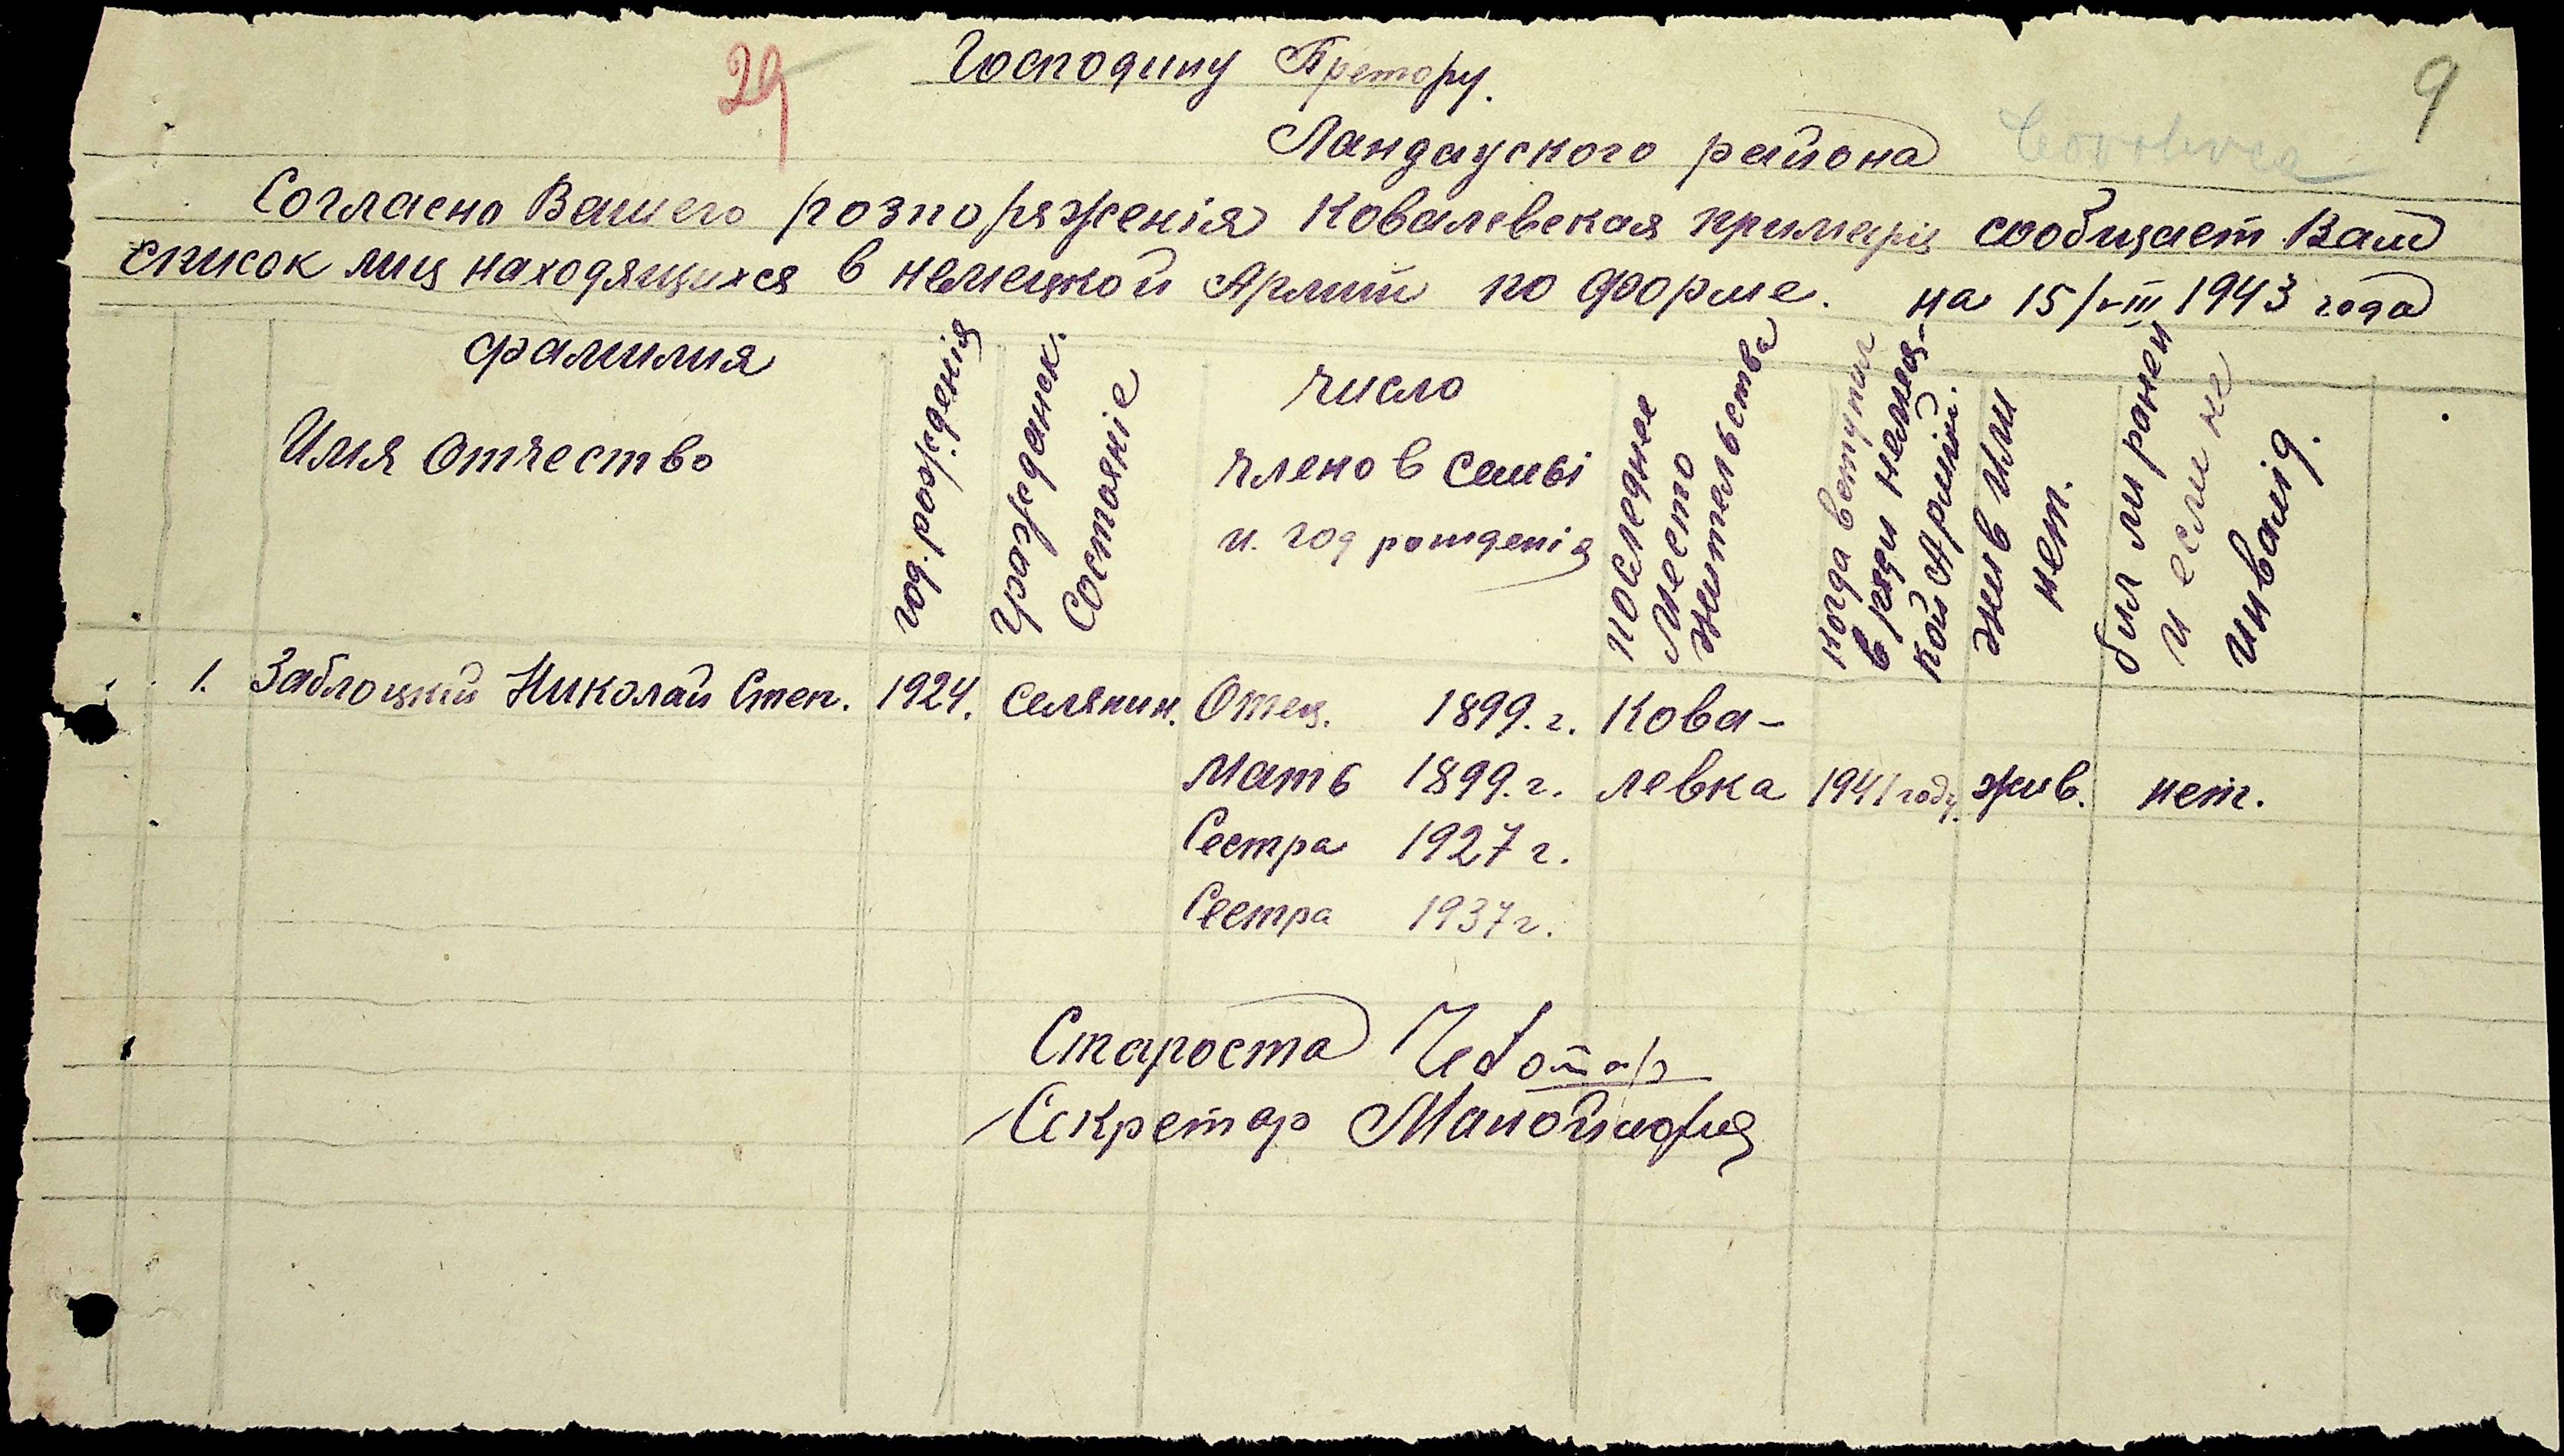 29
Господину Претору.
9
Ландауского района
Согласно Вашего розпоряженія Ковалевская примарія сообщает Вам
список лиц находящихся в немецкой Армии по форме. на 15/VIII 1943 года
фамилия
Имя Отчество
год. рожденія
Гражданск.
Состояніе
число
членов семьі
и. год рожденія
последнее
место
жительства
когда вступил
в ряди немец-
кой Арміи.
жив или
нет.
бил ли ранен
и если не
инвалід.
1. Заблоцкий Николай Степ. 1924. Селянин. Отец. 1899. г. Кова-
Мать 1899. г. левка 1941 году. жив. нет.
Сестра 1927 г.
Сестра 1937 г.
Староста Чеботар
Секретар